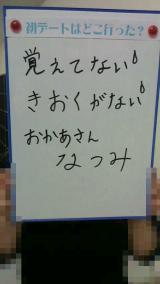 初デートはどこ行った？
覚えてない
きおくがない
おかあさん
なつみ